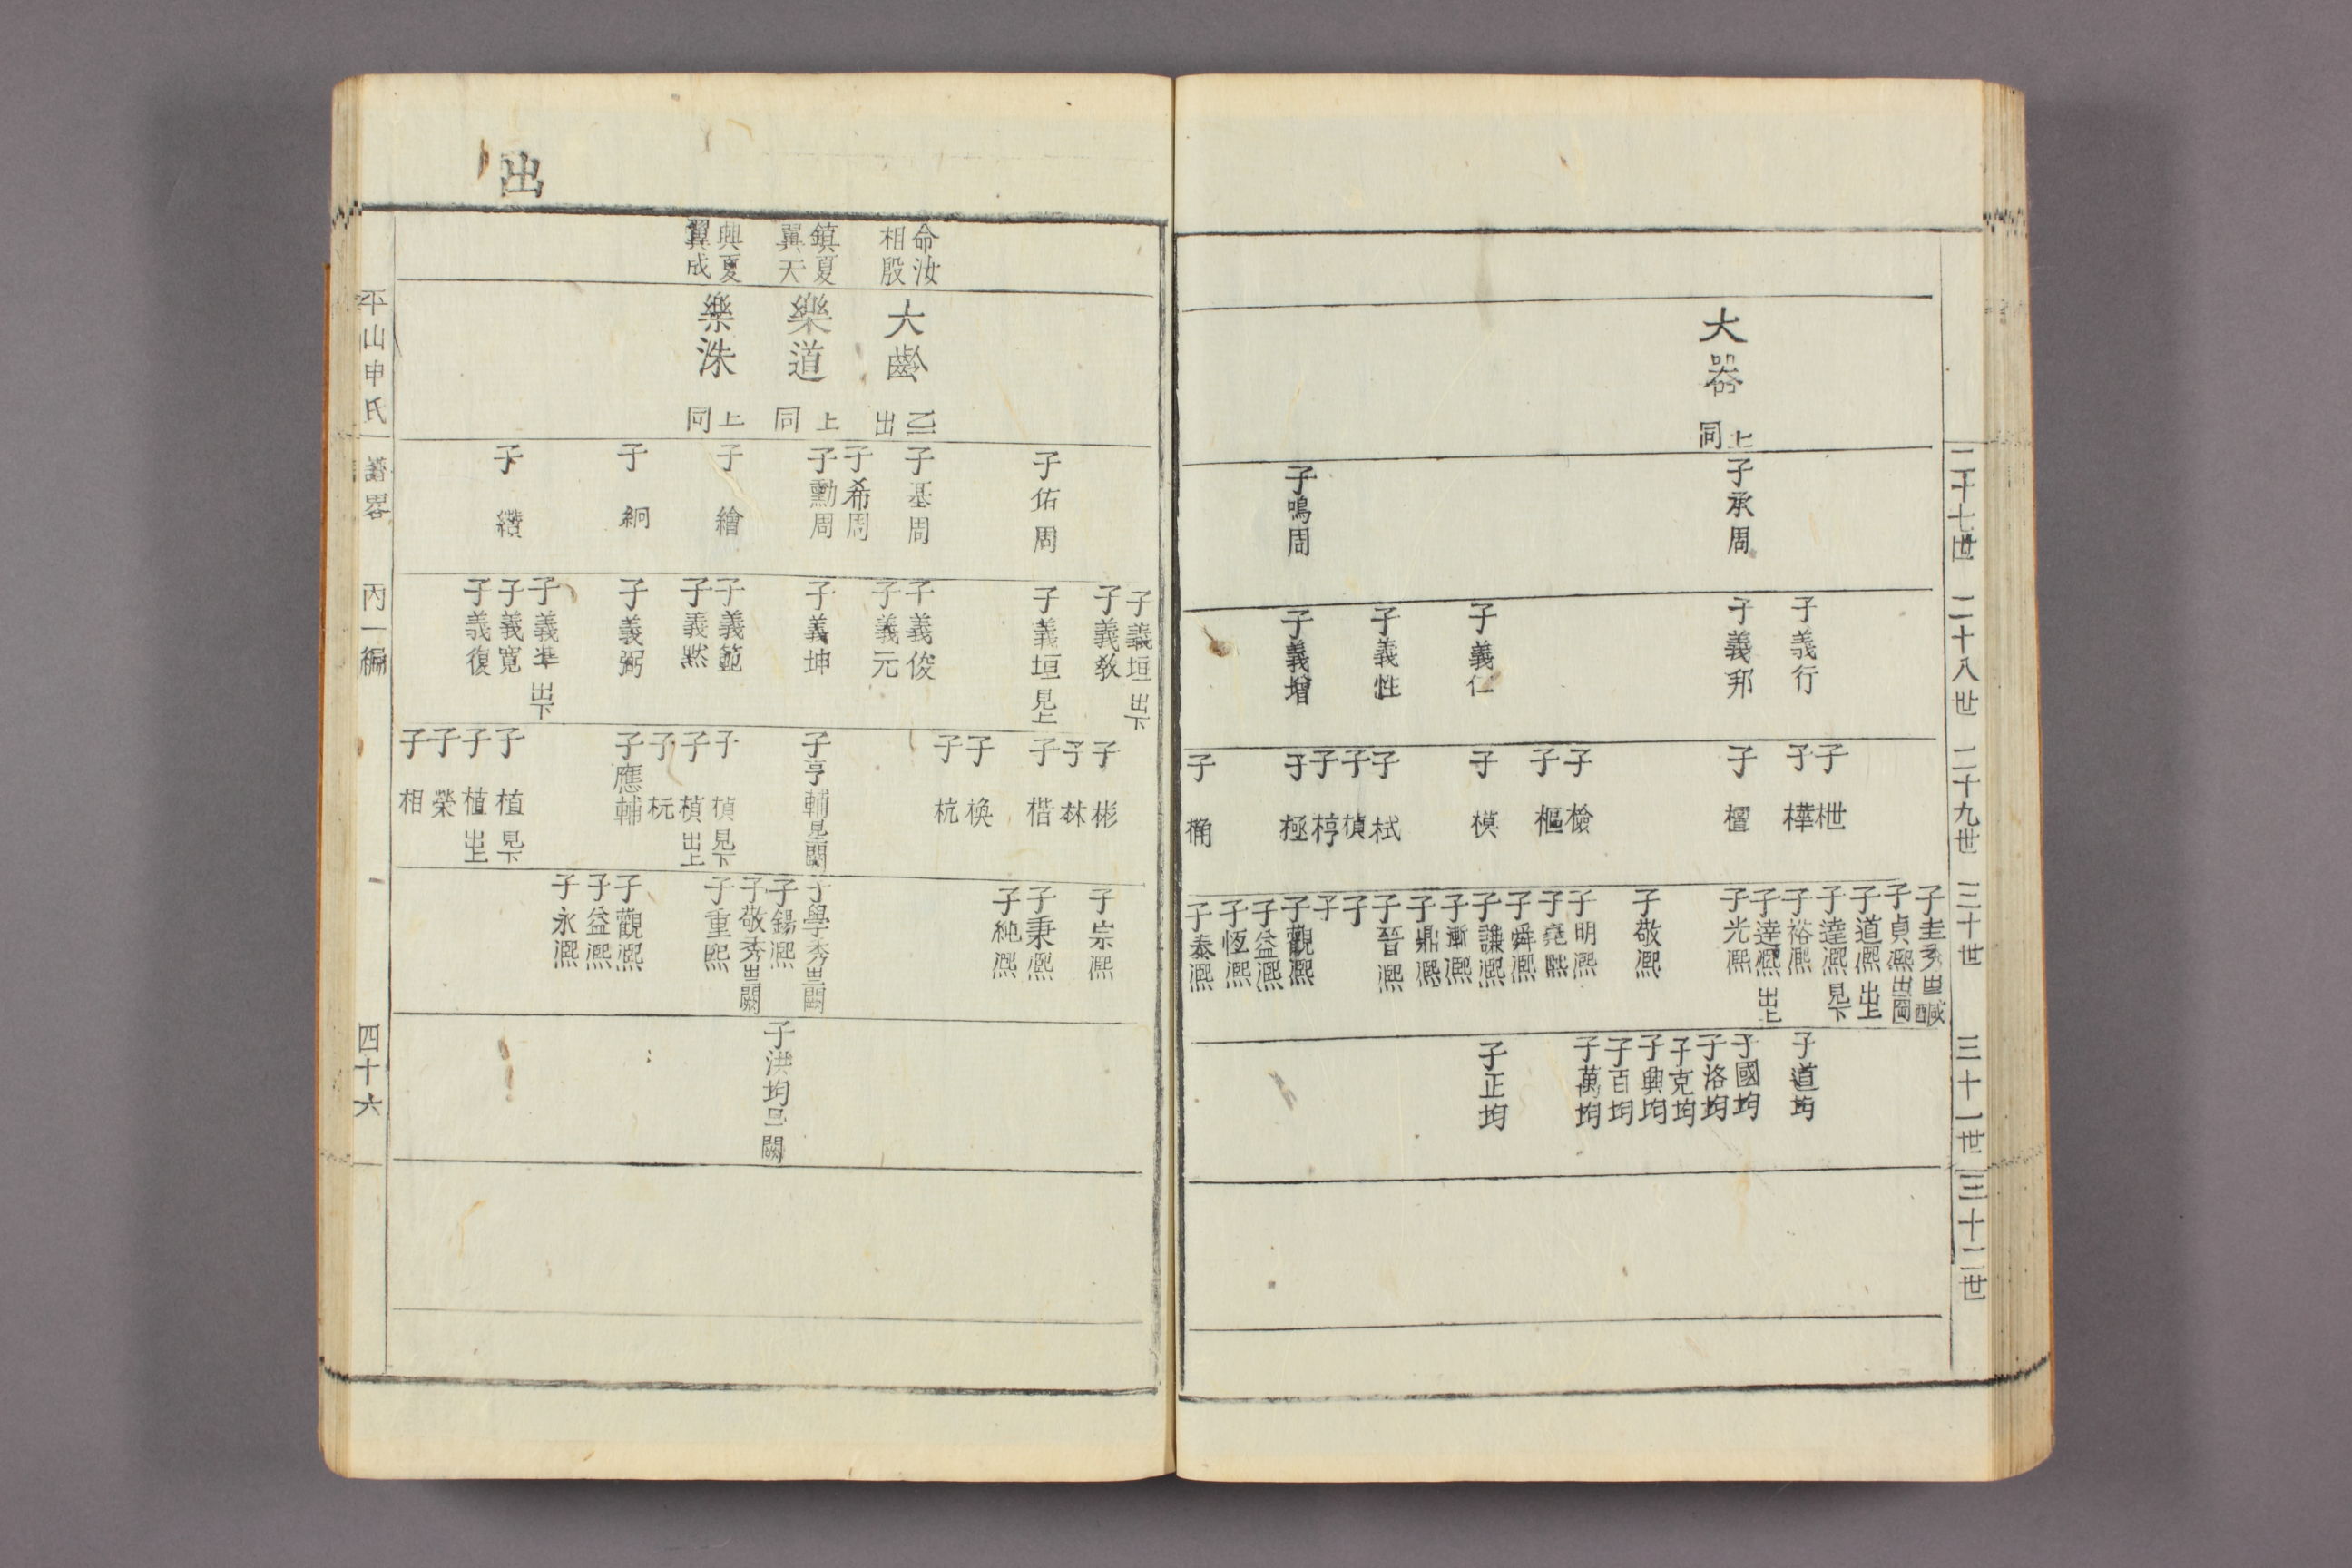 二十七世
二十八世
二十九世
三十世
三十一世
三十二世
大器 上同
子承周
子鳴周
子義行
子義邦
子義仁
子義性
子義增
子枻
子樺
子檀
子檢
子樞
子模
子栻
子楨
子桲
子極
子桷
子圭秀
子貞熙
子道熙 出上
子達熙 見下
子裕熙
子達熙 出上
子光熙
子敬熙
子明熙
子堯熙
子舜熙
子謙熙
子漸熙
子鼎熙
子晉熙
子
子
子觀熙
子益熙
子恆熙
子泰熙
子道均
子國均
子洛均
子克均
子興均
子百均
子萬均
子正均
出
命汝
相殷
鎮夏
翼天
興夏
翼成
大齡
樂道 上同
樂洙 上同
子佑周
子基周
子希周
子勳周
子繪
子絅
子纘
子義垣 出下
子義敎
子義垣 見上
子義俊
子義元
子義坤
子義範
子義黙
子義弼
子義準 出下
子義寬
子義復
子彬
子楙
子楷
子楔
子杭
子亨輔
子楨 見下
子楨 出上
子杬
子應輔
子植 見下
子植 出上
子榮
子相
子宗熙
子秉熙
子純熙
子學秀
子錫熙
子敬秀
子重熙
子觀熙
子益熙
子永熙
子洪均
平山申氏
譜畧
丙一編
四十六